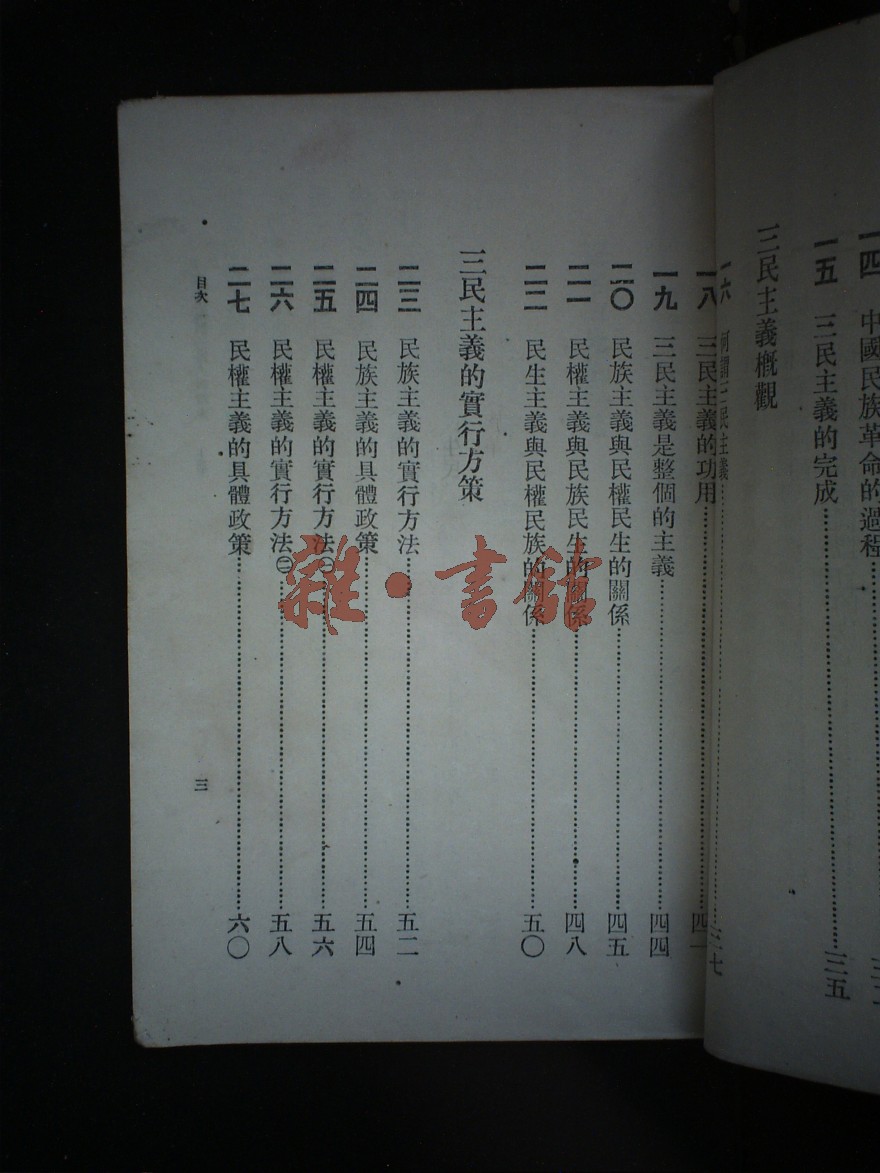 一四 中國民族革命的過程
一五 三民主義的完成 三五
三民主義概觀
一六 何謂三民主義 三七
一八 三民主義的功用
一九 三民主義是整個的主義 四四
二〇 民族主義與民權民生的關係 四五
二一 民權主義與民族民生的關係 四八
二二 民生主義與民權民族的關係 五〇
三民主義的實行方策
二三 民族主義的實行方法 五二
二四 民族主義的具體政策 五四
二五 民權主義的實行方法㊀ 五六
二六 民權主義的實行方法㊁ 五八
二七 民權主義的具體政策 六〇
目次
三
雜·書館